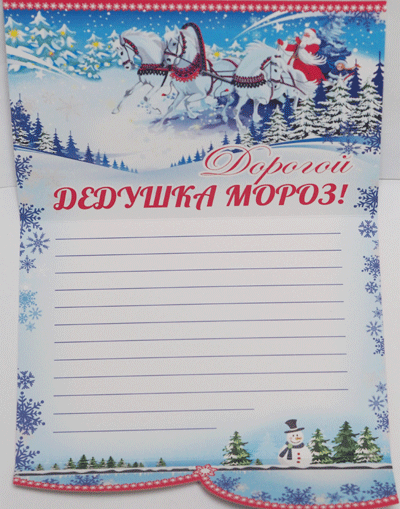 Дорогой
ДЕДУШКА МОРОЗ!